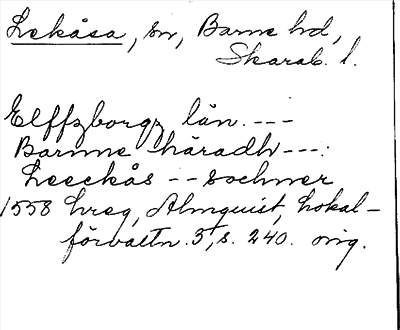 Lekåsa, sn, Barne hd,
Skarab. l.
Elffzborgz län. ---
Barnne häradh ---:
Leeckås -- sochner
1558 hreg, Almquist, Lokal-
förvaltn. 3, s. 240. orig.